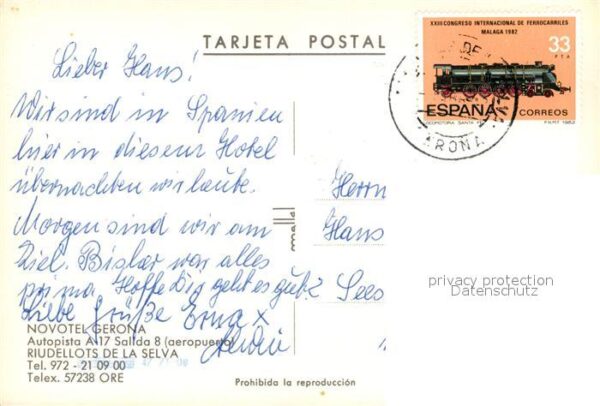 TARJETA POSTAL
XXIII CONGRESO INTERNACIONAL DE FERROCARRILES
MALAGA 1982
33
PTA
ESPAÑA
CORREOS
LOCOMOTORA SANTA
F.N.M.T. 1982
ARONA
Lieber Hans!
Wir sind in Spanien
hier in diesem Hotel
übernachten wir heute.
Morgen sind wir am
Ziel. Bisher war alles
prima. Hoffe Dir geht es gut?
Liebe Grüße Erna x
Herrn
Hans
Sees
privacy protection
Datenschutz
NOVOTEL GERONA
Autopista A-17 Salida 8 (aeropuerto)
RIUDELLOTS DE LA SELVA
Tel. 972 - 21 09 00
Telex. 57238 ORE
Prohibida la reproducción